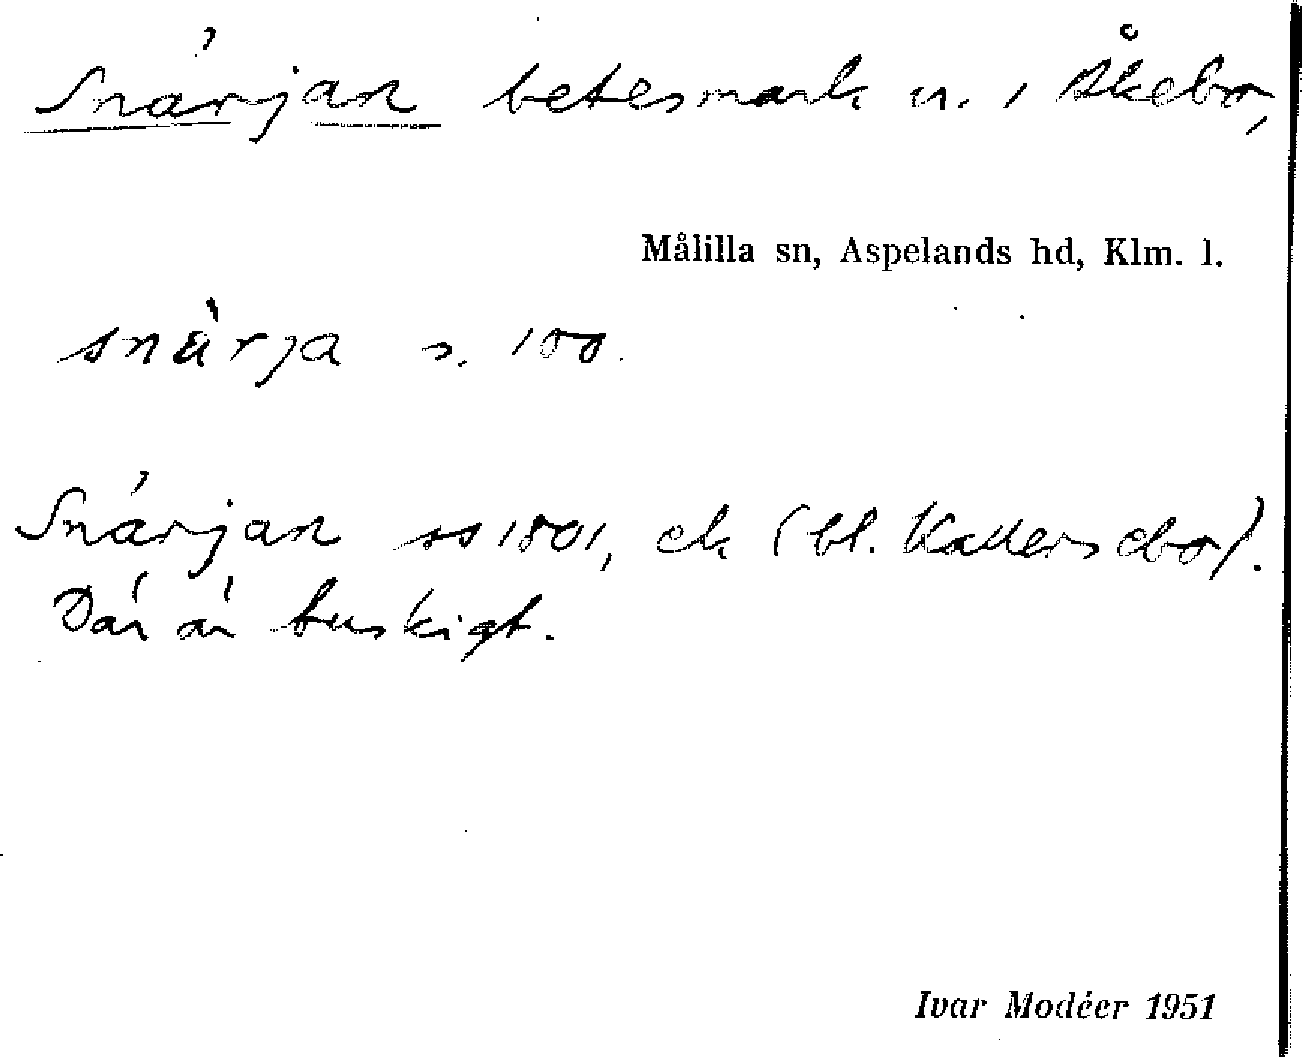 Snärjan betesmark u. i Åkebo,
Målilla sn, Aspelands hd, Klm. l.
snärja s. 100.
Snärjan ss 1801, ek (bl. Kallersebo).
Där är buskigt.
Ivar Modéer 1951